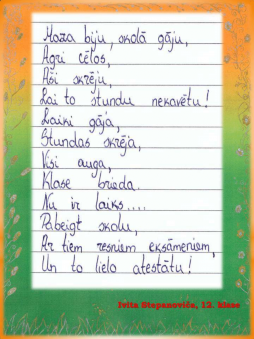 Maza biju, skolā gāju,
Agri cēlos,
Aši skrēju,
Lai to stundu nekavētu!
Laiki gāja,
Stundas skrēja,
Visi auga,
Klase brieda.
Nu ir laiks....
Pabeigt skolu,
Ar tiem resniem eksāmeniem,
Un to lielo atestātu!
Ivita Stepanoviča, 12. klase